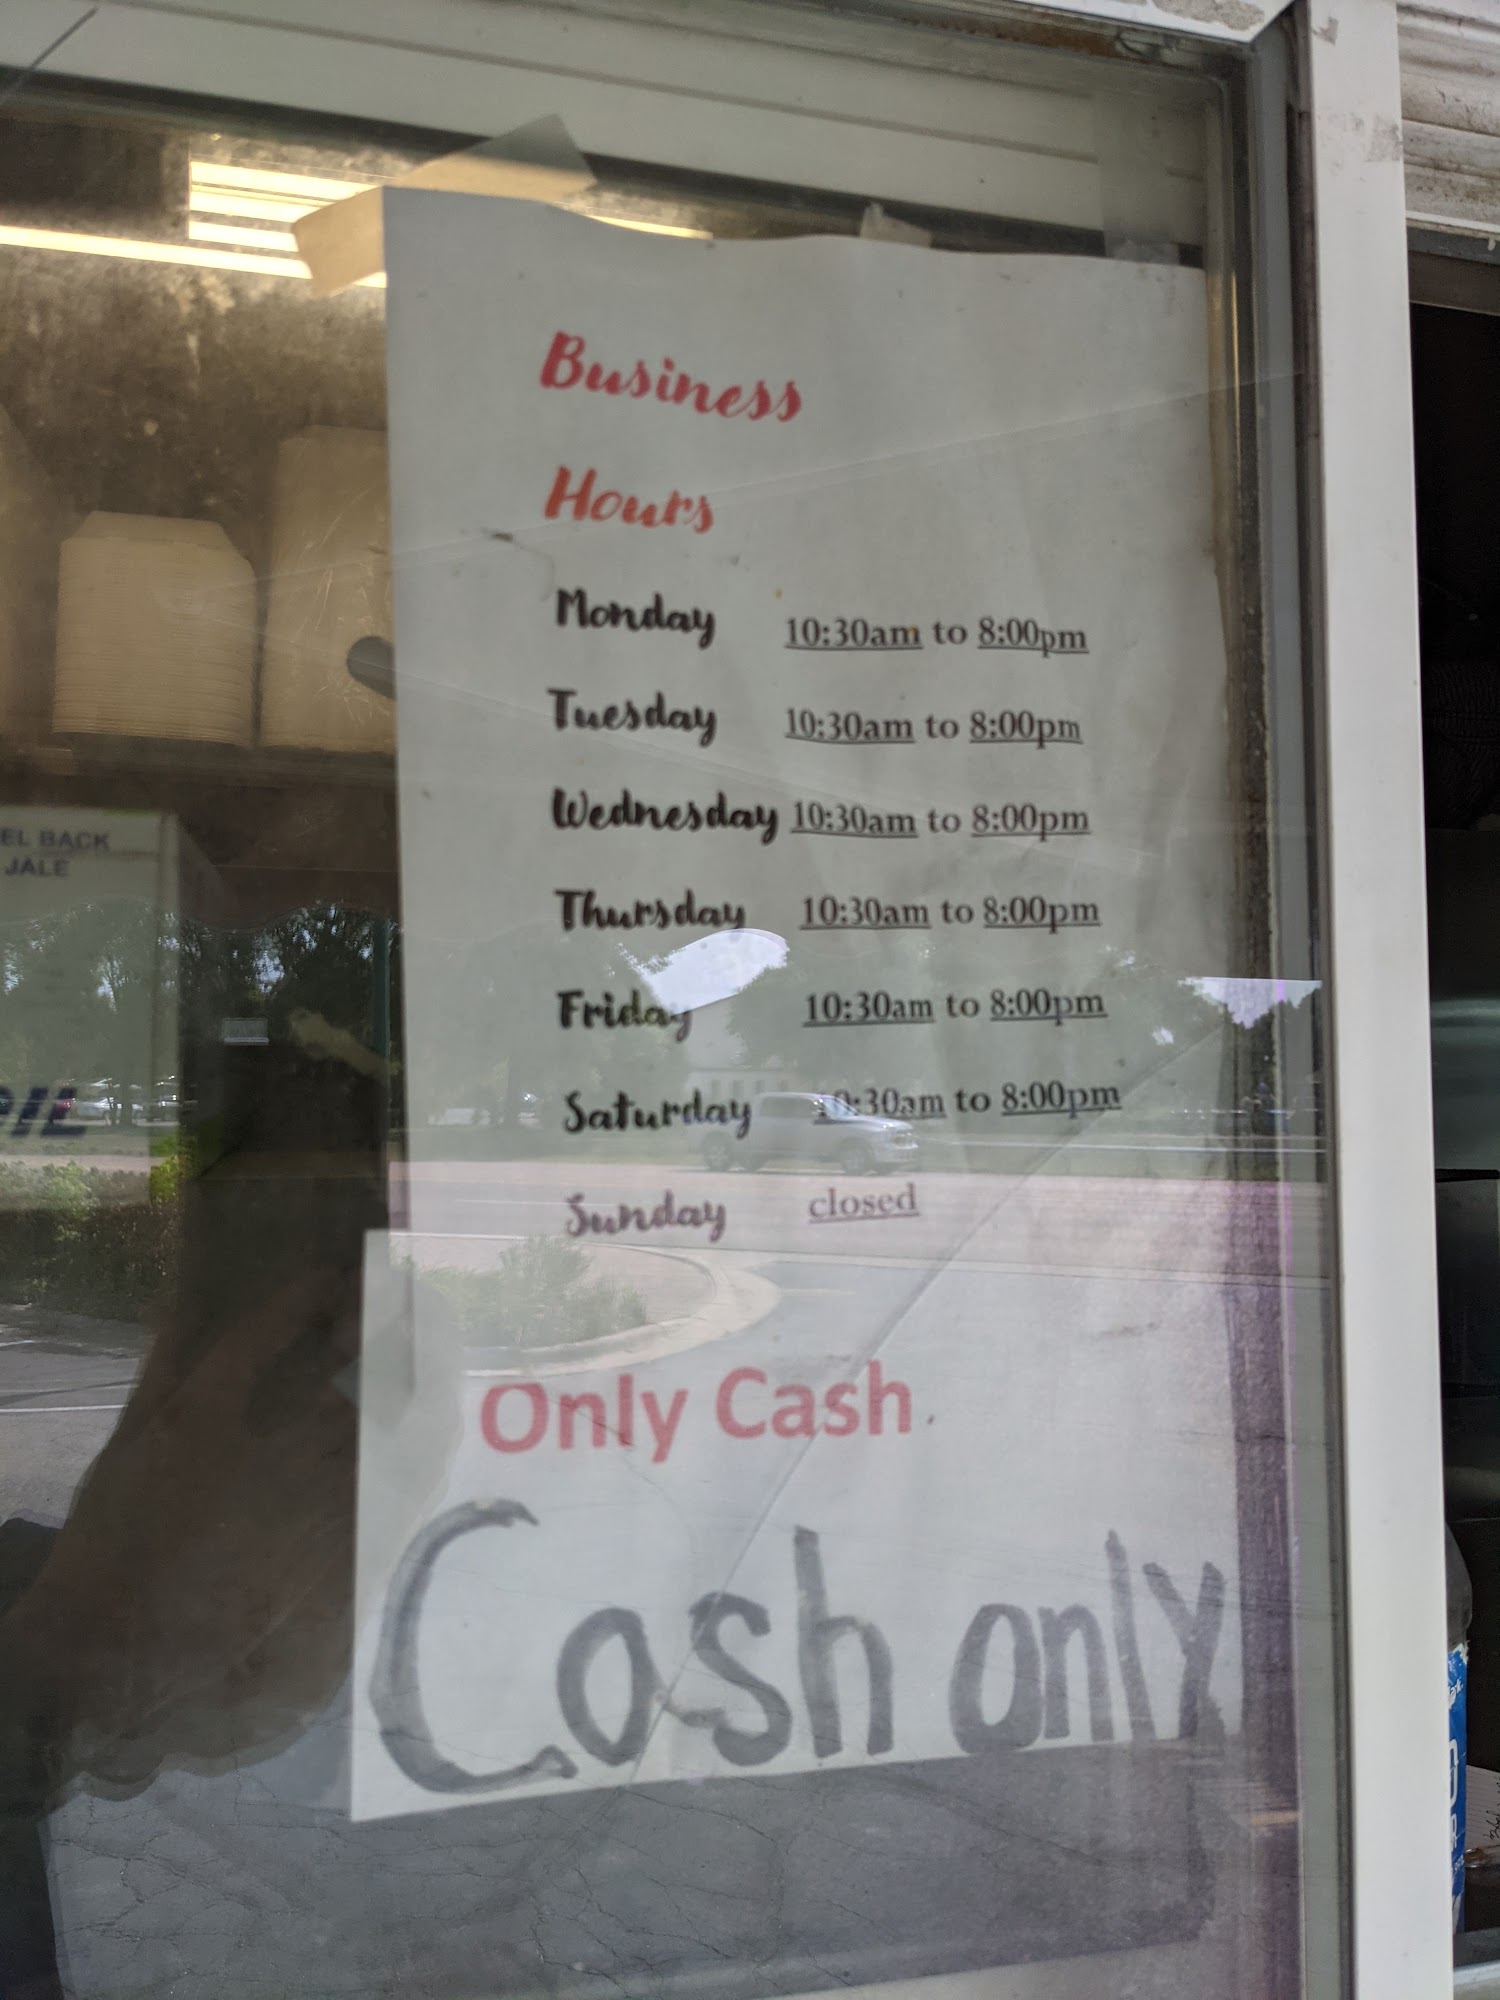 Business
Hours
Monday 10:30am to 8:00pm
Tuesday 10:30am to 8:00pm
Wednesday 10:30am to 8:00pm
Thursday 10:30am to 8:00pm
Friday 10:30am to 8:00pm
Saturday 10:30am to 8:00pm
Sunday closed
Only Cash
Cash only
EL BACK
JALE